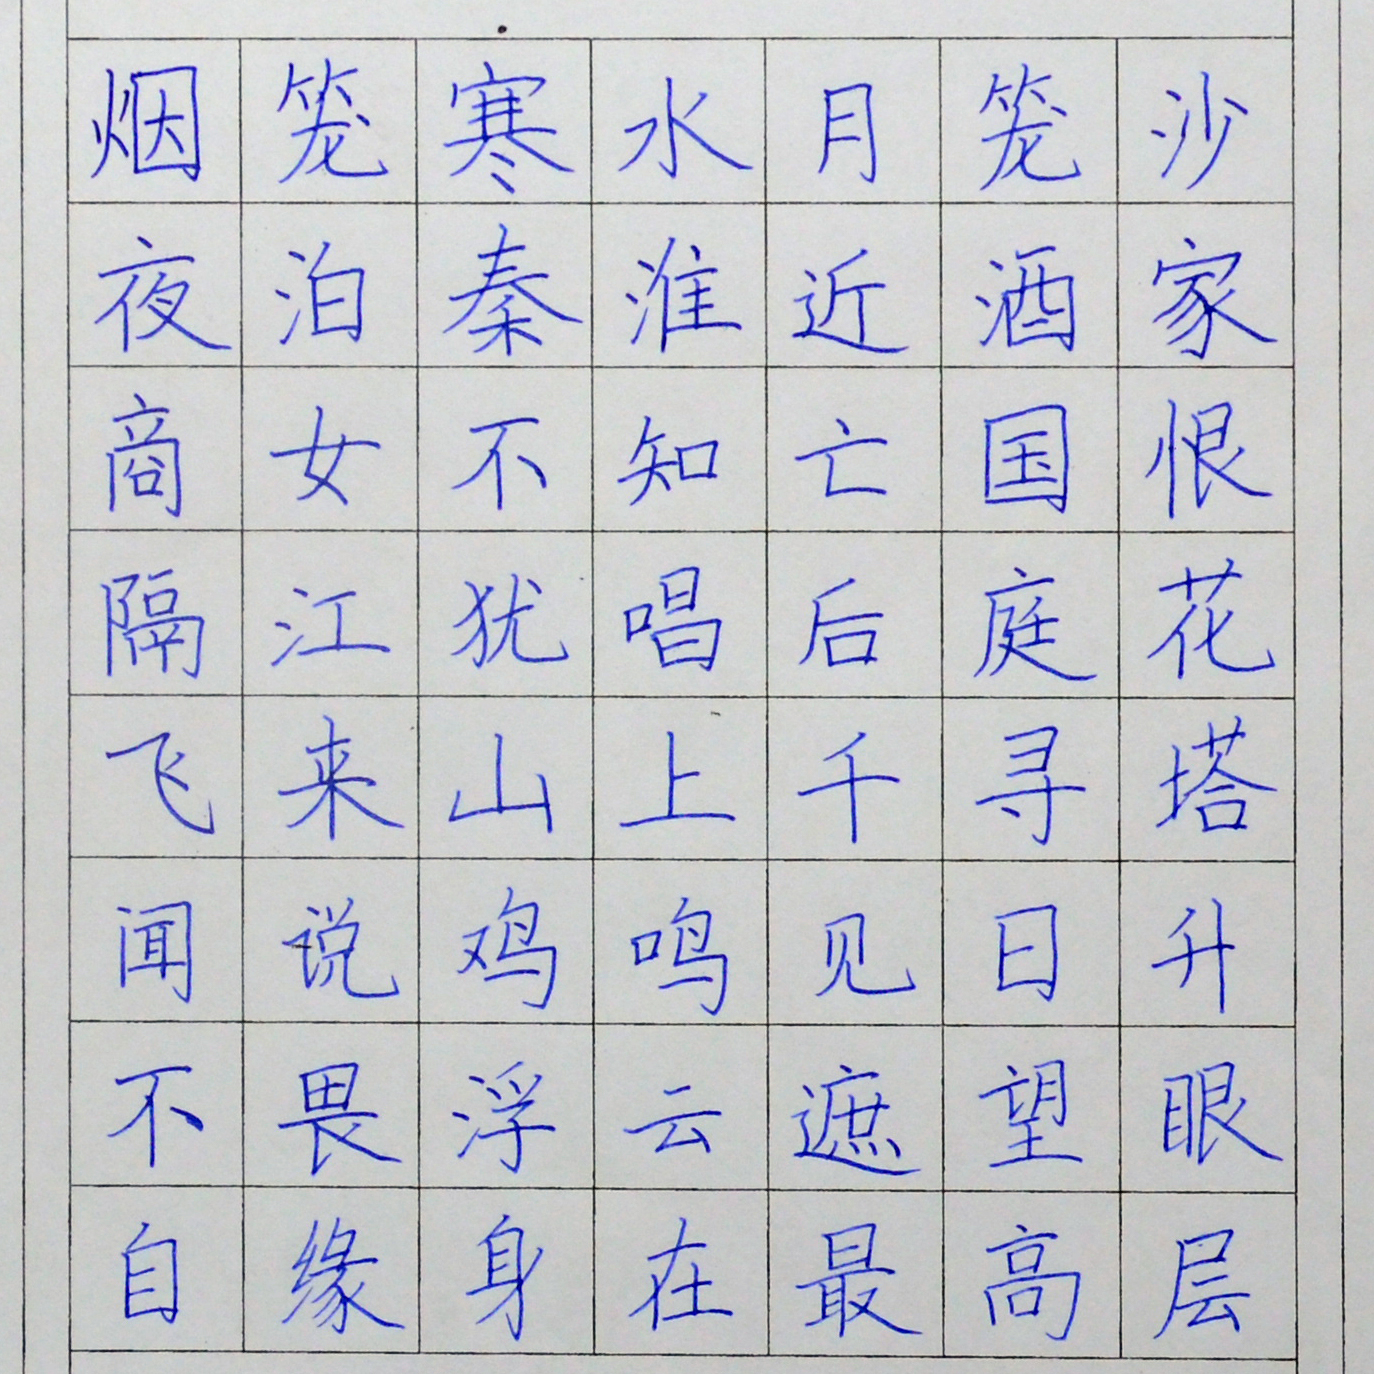 烟笼寒水月笼沙
夜泊秦淮近酒家
商女不知亡国恨
隔江犹唱后庭花
飞来山上千寻塔
闻说鸡鸣见日升
不畏浮云遮望眼
自缘身在最高层